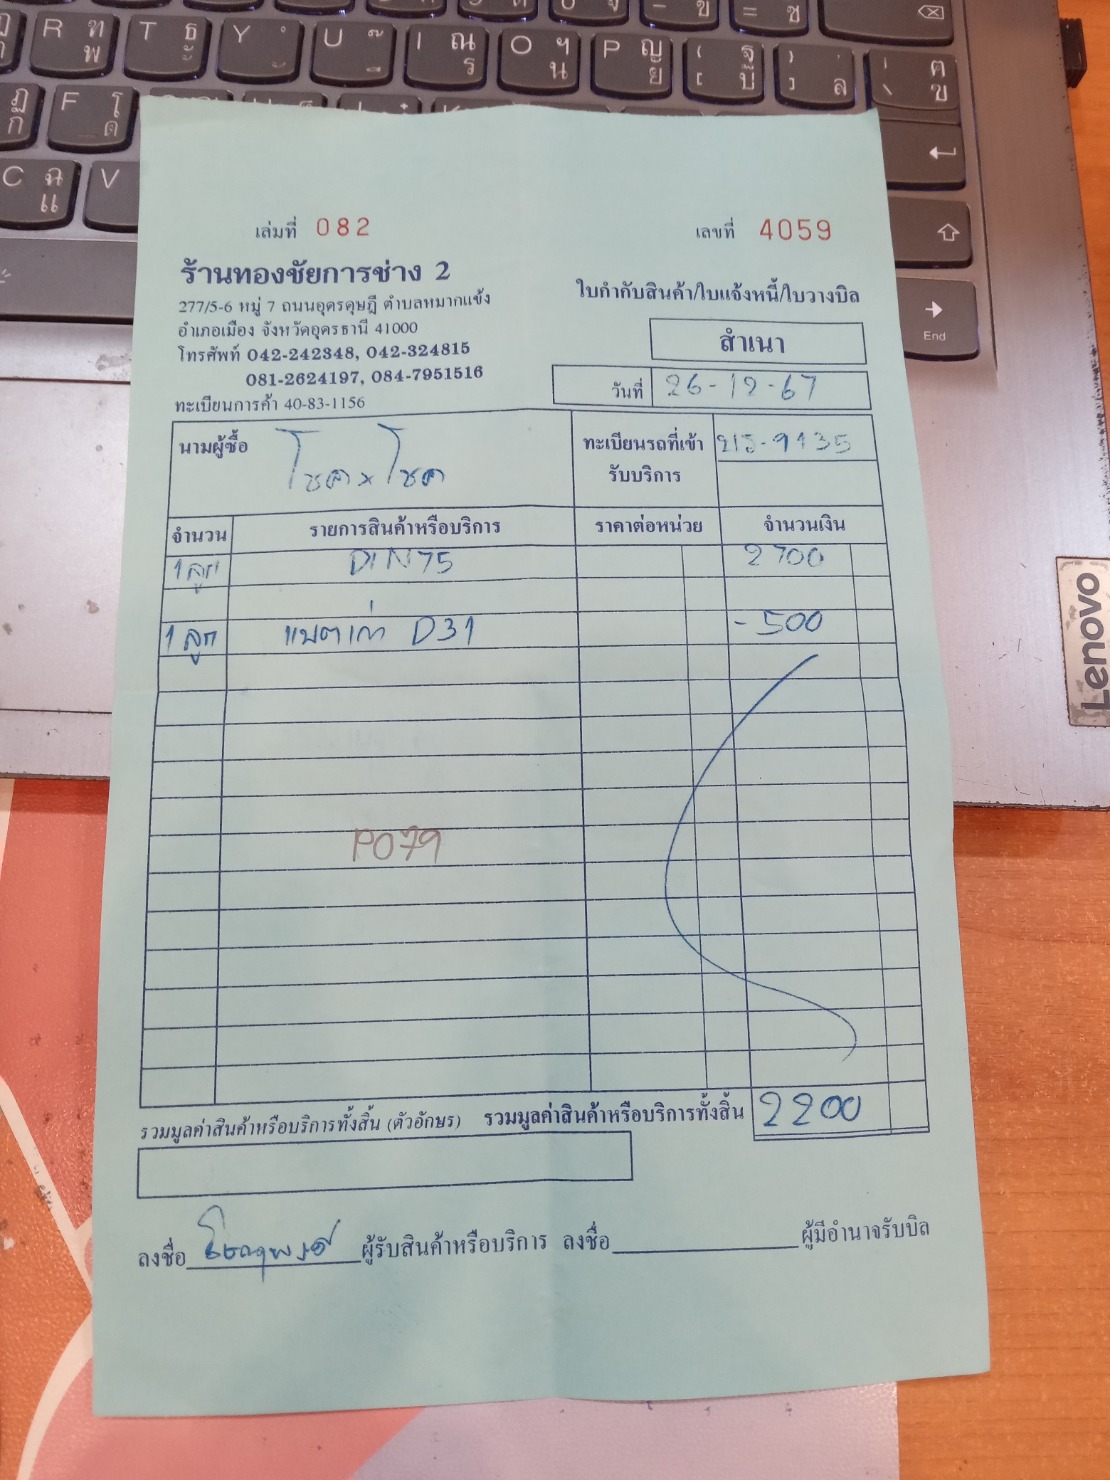 R ท พ T ธ ะ Y U I ณ ร O ฯ น P ญ ย [ ฐ บ ] ล \ ฅ ฃ
F โ ด
C ฉ แ V
End
Lenovo
เล่มที่ 082
เลขที่ 4059
ร้านทองชัยการช่าง 2
277/5-6 หมู่ 7 ถนนอุดรดุษฎี ตำบลหมากแข้ง
อำเภอเมือง จังหวัดอุดรธานี 41000
โทรศัพท์ 042-242348, 042-324815
081-2624197, 084-7951516
ทะเบียนการค้า 40-83-1156
ใบกำกับสินค้า/ใบแจ้งหนี้/ใบวางบิล
สำเนา
วันที่ 26-12-67
นามผู้ซื้อ โชค x โชค
ทะเบียนรถที่เข้า
รับบริการ
-9135
จำนวน รายการสินค้าหรือบริการ ราคาต่อหน่วย จำนวนเงิน
1 ลูก DIN75 2700
1 ลูก แบตเก่า D31 -500
P079
รวมมูลค่าสินค้าหรือบริการทั้งสิ้น (ตัวอักษร) รวมมูลค่าสินค้าหรือบริการทั้งสิ้น 2200
ลงชื่อ ผู้รับสินค้าหรือบริการ ลงชื่อ ผู้มีอำนาจรับบิล